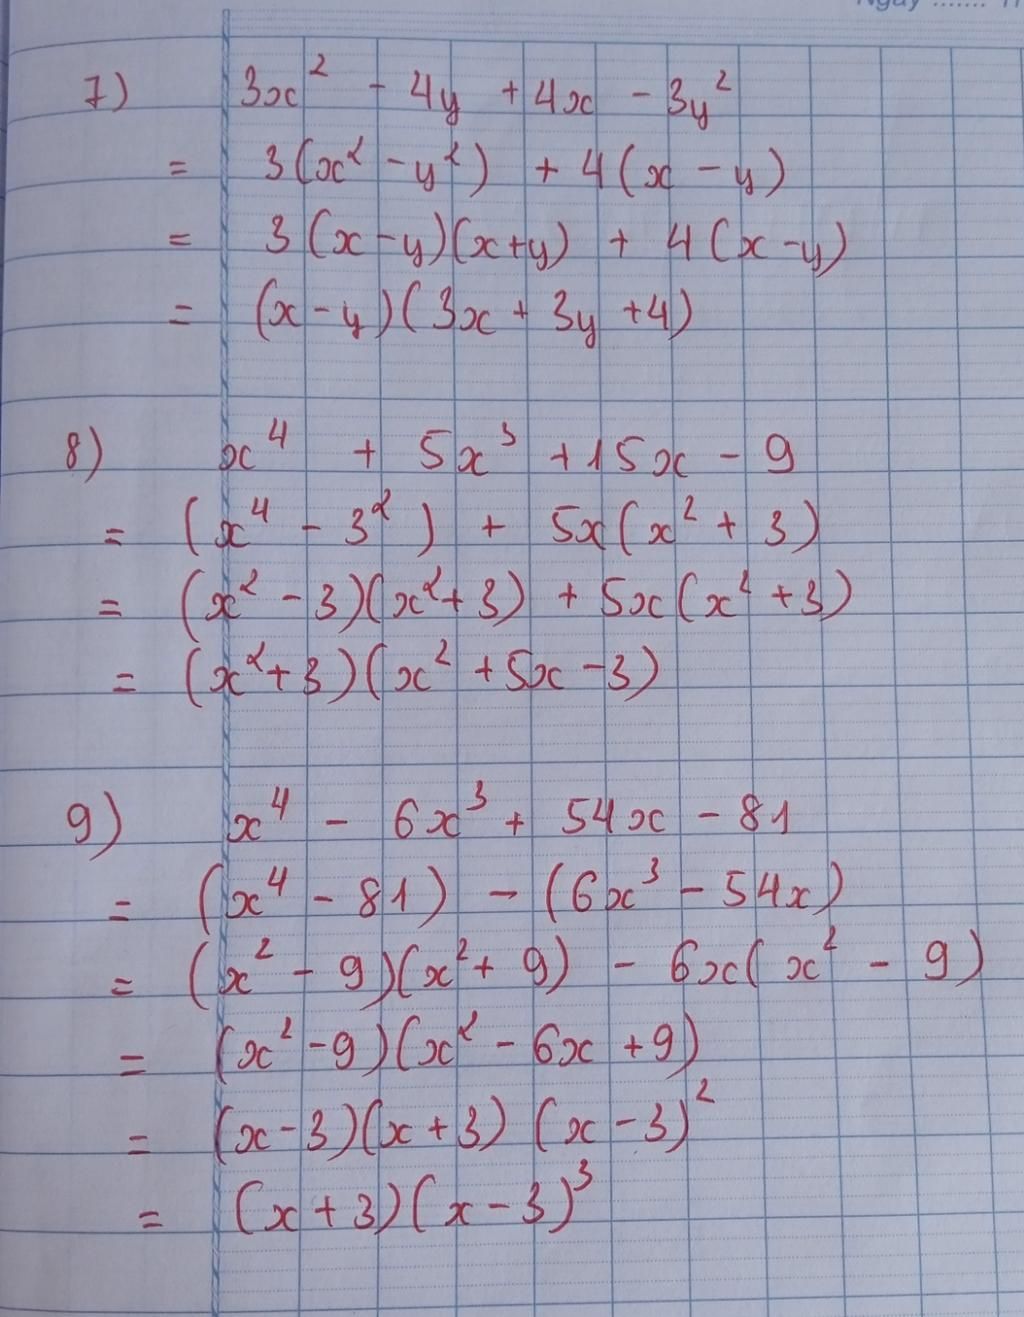 Ngày .......
7) 3x² - 4y + 4x - 3y²
= 3(x² - y²) + 4(x - y)
= 3(x - y)(x + y) + 4(x - y)
= (x - y)(3x + 3y + 4)
8) x⁴ + 5x³ + 15x - 9
= (x⁴ - 3²) + 5x(x² + 3)
= (x² - 3)(x² + 3) + 5x(x² + 3)
= (x² + 3)(x² + 5x - 3)
9) x⁴ - 6x³ + 54x - 81
= (x⁴ - 81) - (6x³ - 54x)
= (x² - 9)(x² + 9) - 6x(x² - 9)
= (x² - 9)(x² - 6x + 9)
= (x - 3)(x + 3)(x - 3)²
= (x + 3)(x - 3)³